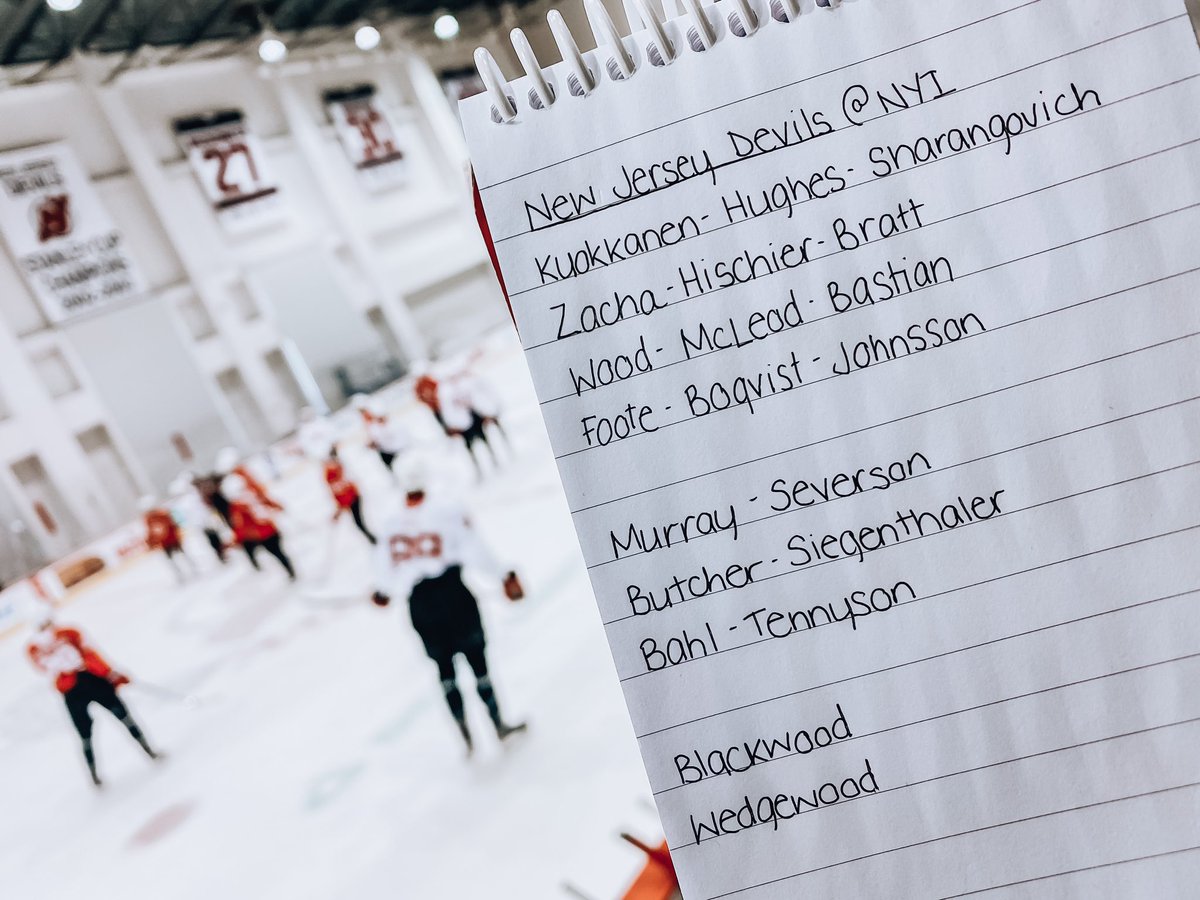 New Jersey Devils @NYI
Kuokkanen - Hughes - Sharangovich
Zacha - Hischier - Bratt
Wood - McLeod - Bastian
Foote - Boqvist - Johnsson
Murray - Severson
Butcher - Siegenthaler
Bahl - Tennyson
Blackwood
Wedgewood
DEVILS
STANLEY CUP
CHAMPIONS
27